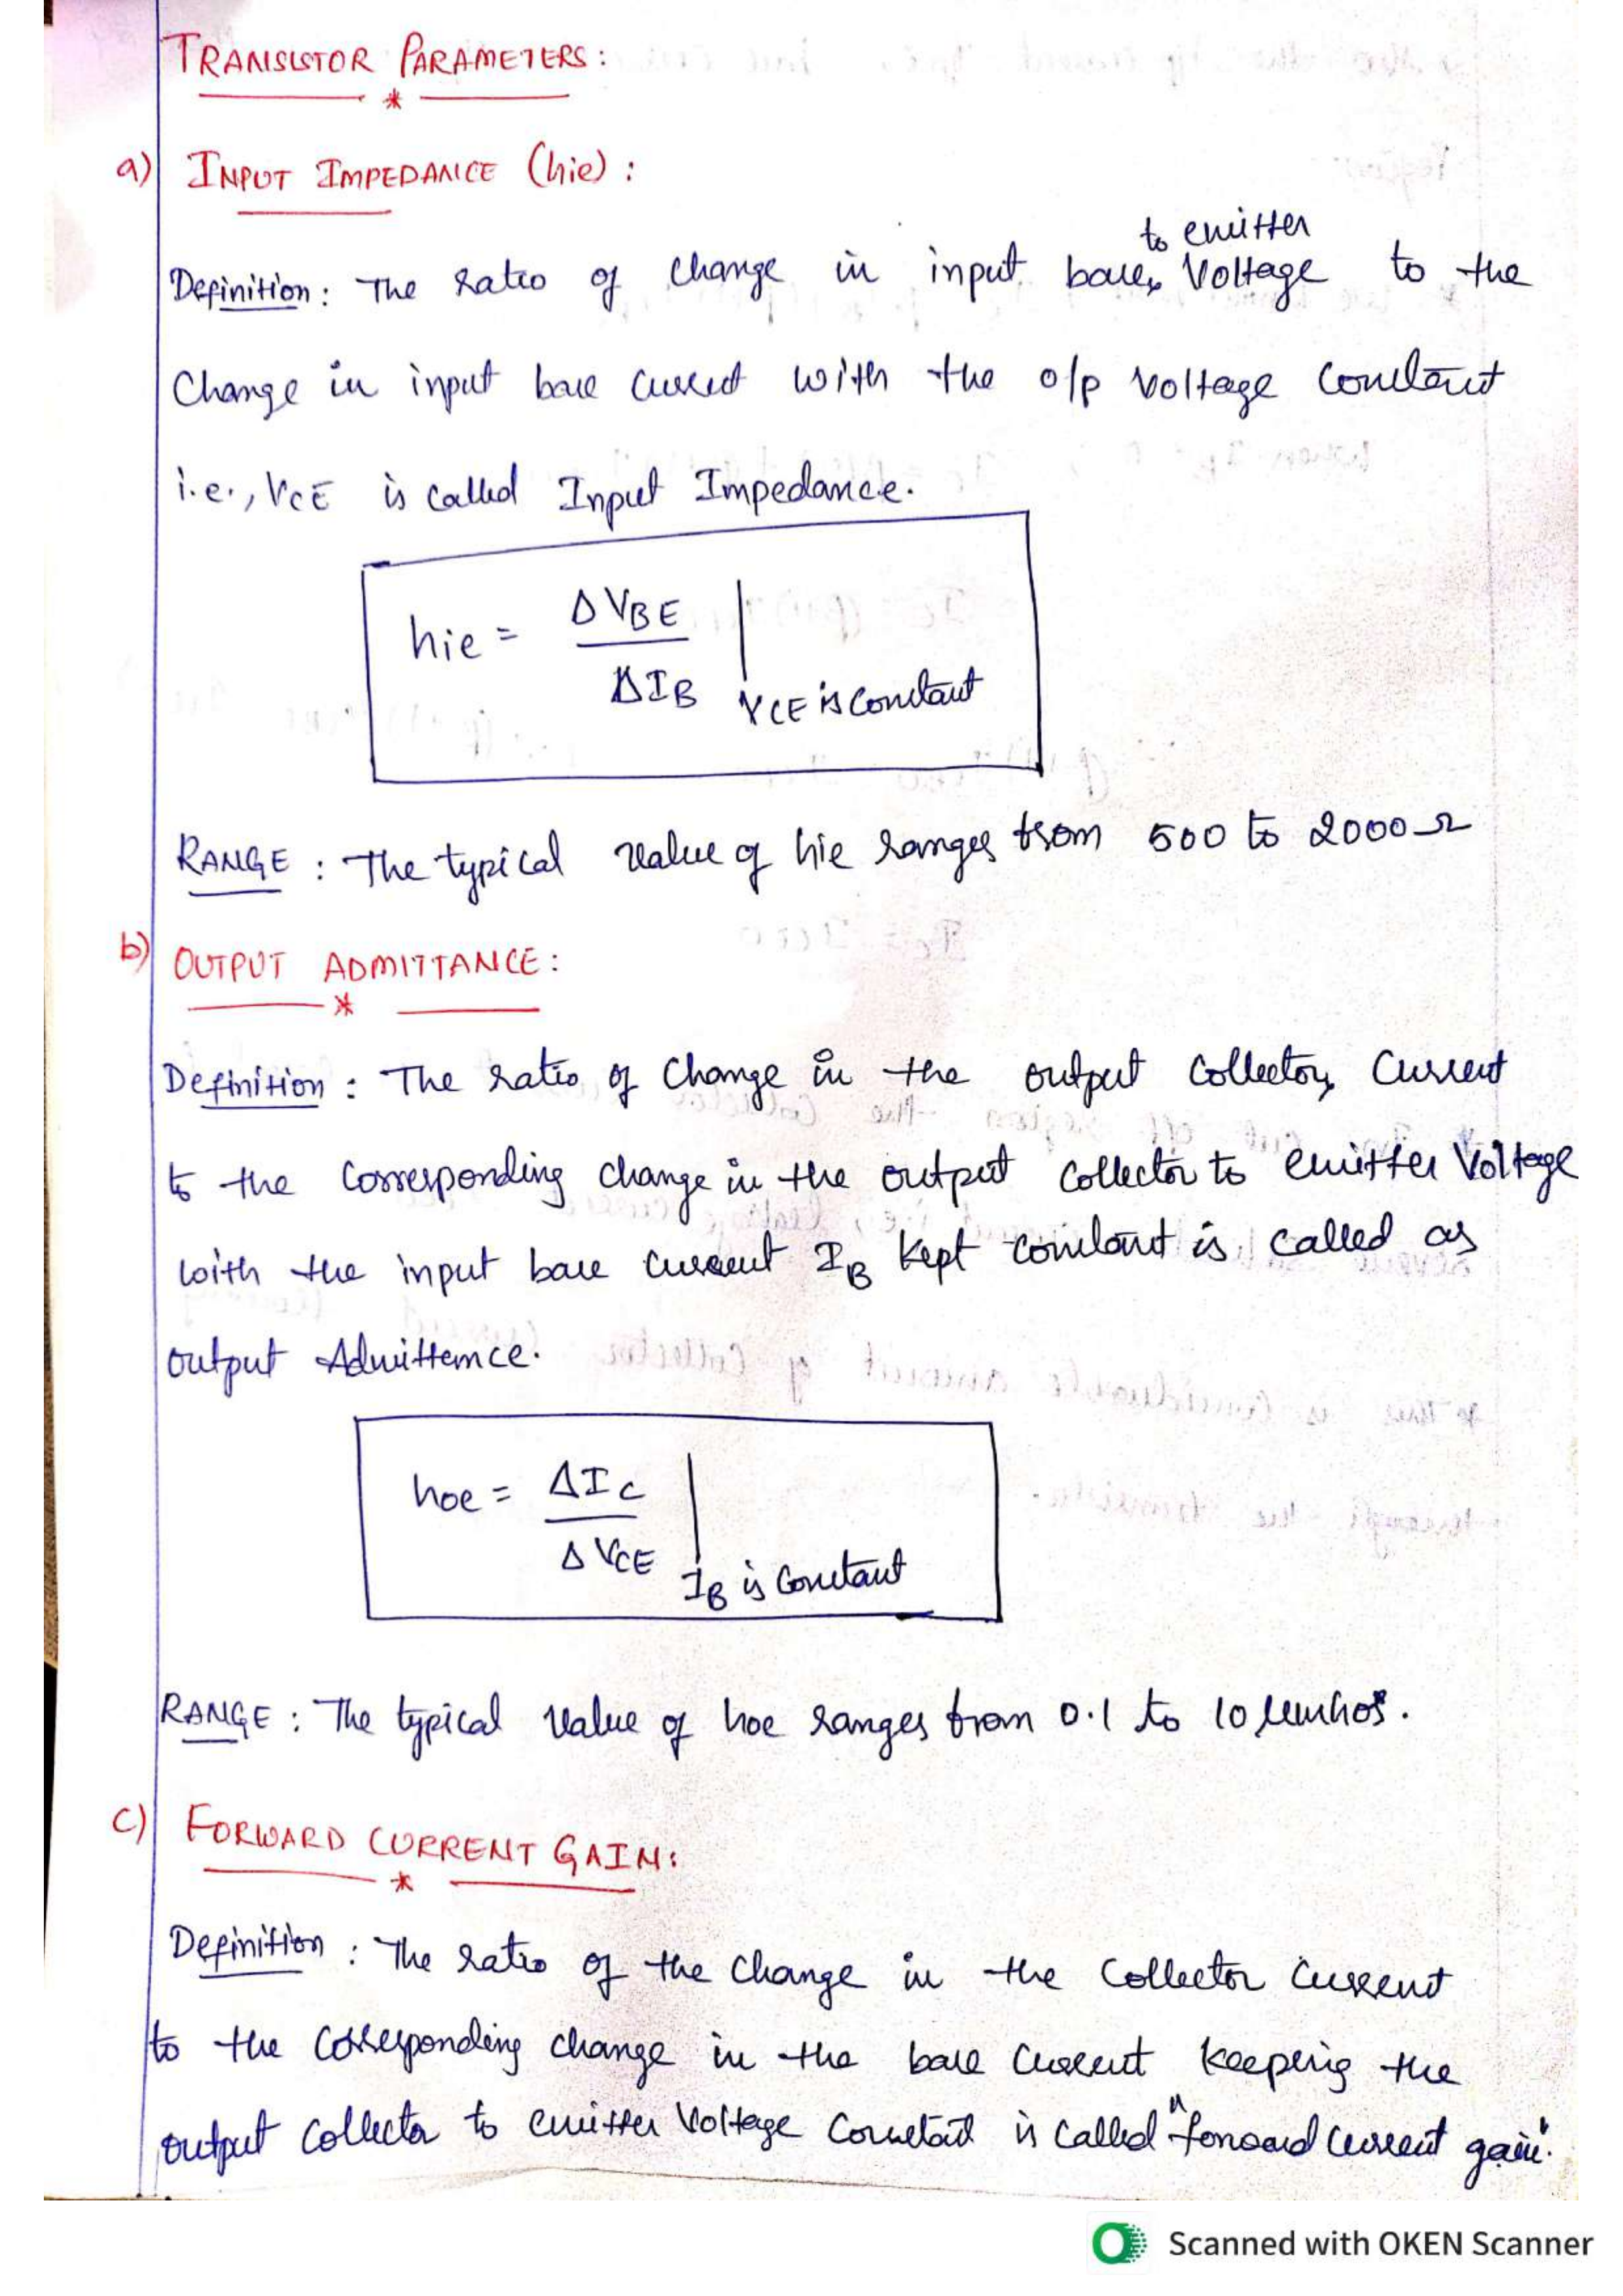 TRANSISTOR PARAMETERS:
a) INPUT IMPEDANCE (hie) :
to emitter
Definition: The ratio of change in input base Voltage to the
Change in input base current with the o/p voltage constant
i.e., VCE is called Input Impedance.
hie = ΔVBE
ΔIB VCE is Constant
RANGE : The typical value of hie ranges from 500 to 2000Ω
b) OUTPUT ADMITTANCE:
Definition : The ratio of change in the output collector current
to the corresponding change in the output collector to emitter Voltage
with the input base current IB kept constant is called as
output Admittance.
hoe = ΔIC
ΔVCE IB is Constant
RANGE : The typical value of hoe ranges from 0.1 to 10 μmhos.
c) FORWARD CURRENT GAIN:
Definition : The ratio of the change in the collector current
to the corresponding change in the base current keeping the
output collector to emitter Voltage constant is called "forward current gain".
Scanned with OKEN Scanner